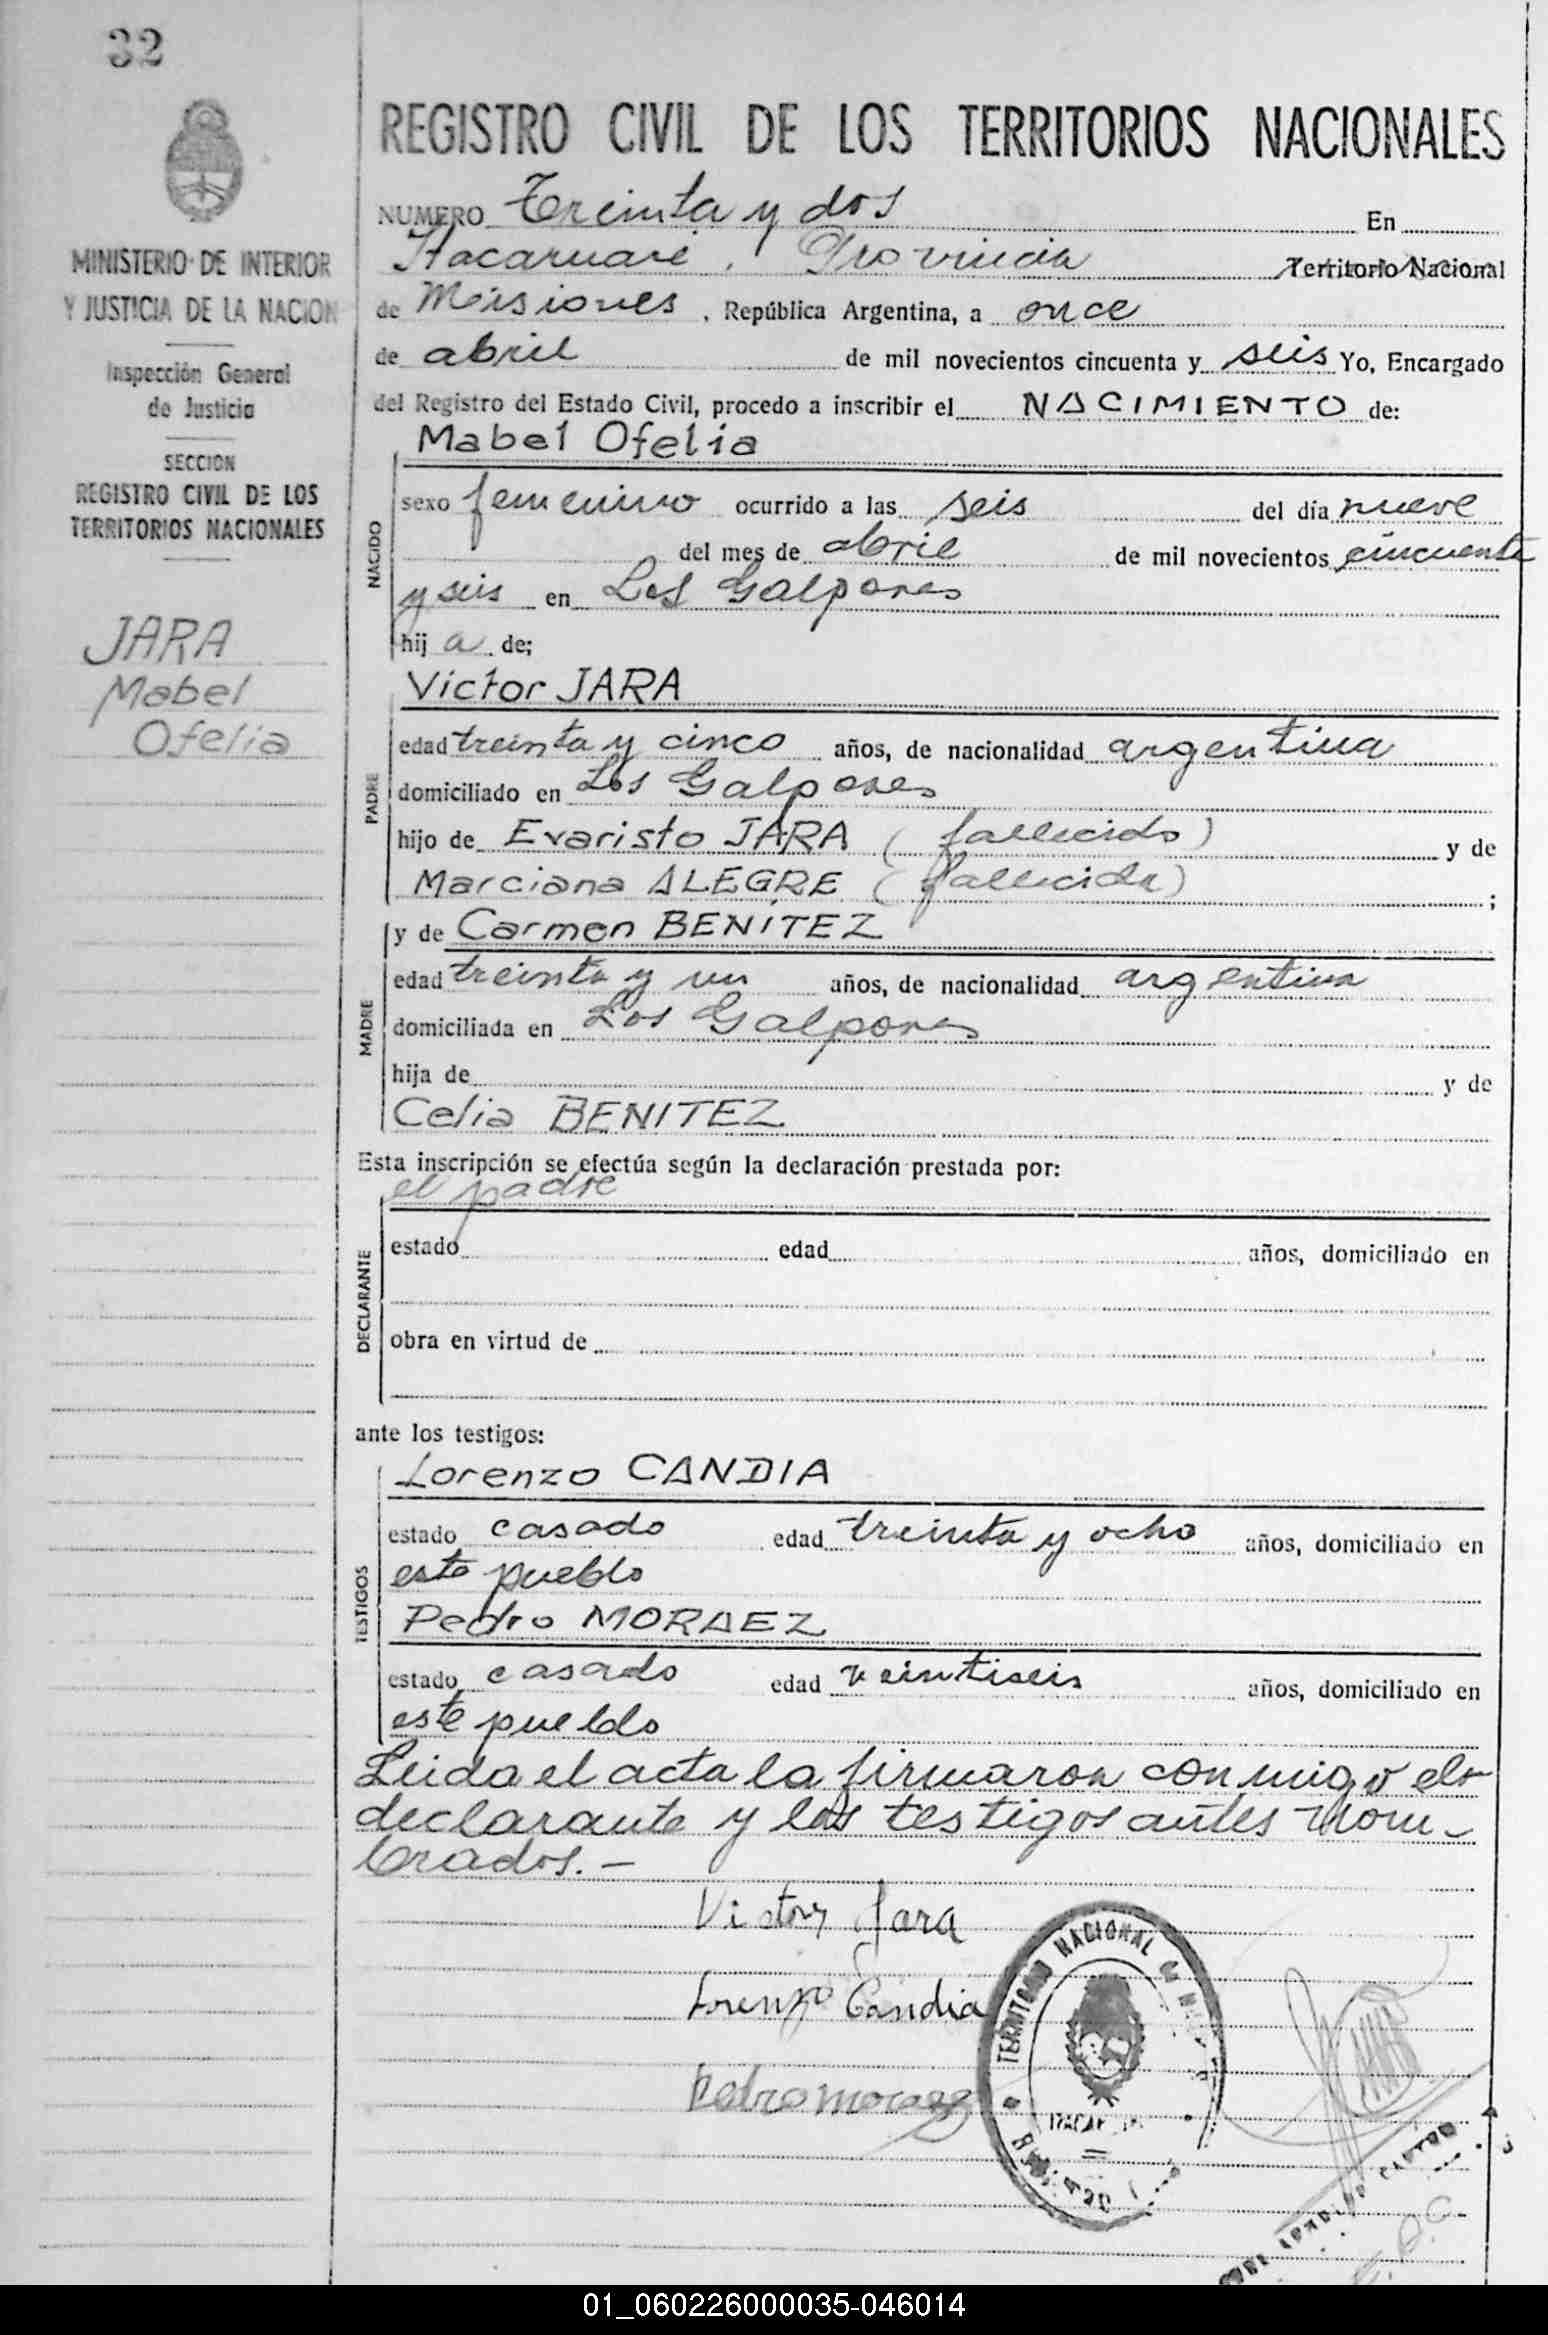 32
MINISTERIO DE INTERIOR
Y JUSTICIA DE LA NACION
Inspección General
de Justicia
SECCION
REGISTRO CIVIL DE LOS
TERRITORIOS NACIONALES
JARA
Mabel
Ofelia
REGISTRO CIVIL DE LOS TERRITORIOS NACIONALES
NUMERO Treinta y dos En
Itacaruaré, Provincia Territorio Nacional
de Misiones, República Argentina, a once
de abril de mil novecientos cincuenta y seis Yo, Encargado
del Registro del Estado Civil, procedo a inscribir el NACIMIENTO de:
Mabel Ofelia
NACIDO
sexo femenino ocurrido a las seis del día nueve
del mes de abril de mil novecientos cincuenta
y seis en Los Galpones
hij a de;
Victor JARA
PADRE
edad treinta y cinco años, de nacionalidad argentina
domiciliado en Los Galpones
hijo de Evaristo JARA (fallecido) y de
Marciana ALEGRE (fallecida) ;
y de Carmen BENÍTEZ
MADRE
edad treinta y un años, de nacionalidad argentina
domiciliada en Los Galpones
hija de y de
Celia BENITEZ
Esta inscripción se efectúa según la declaración prestada por:
el padre
DECLARANTE
estado edad años, domiciliado en
obra en virtud de
ante los testigos:
Lorenzo CANDIA
TESTIGOS
estado casado edad treinta y ocho años, domiciliado en
este pueblo
Pedro MORAEZ
estado casado edad veintiseis años, domiciliado en
este pueblo
Leida el acta la firmaron conmigo el
declarante y los testigos antes nom-
brados.-
Victor Jara
Lorenzo Candia
Pedro moraez
TERRITORIO NACIONAL DE
01_060226000035-046014